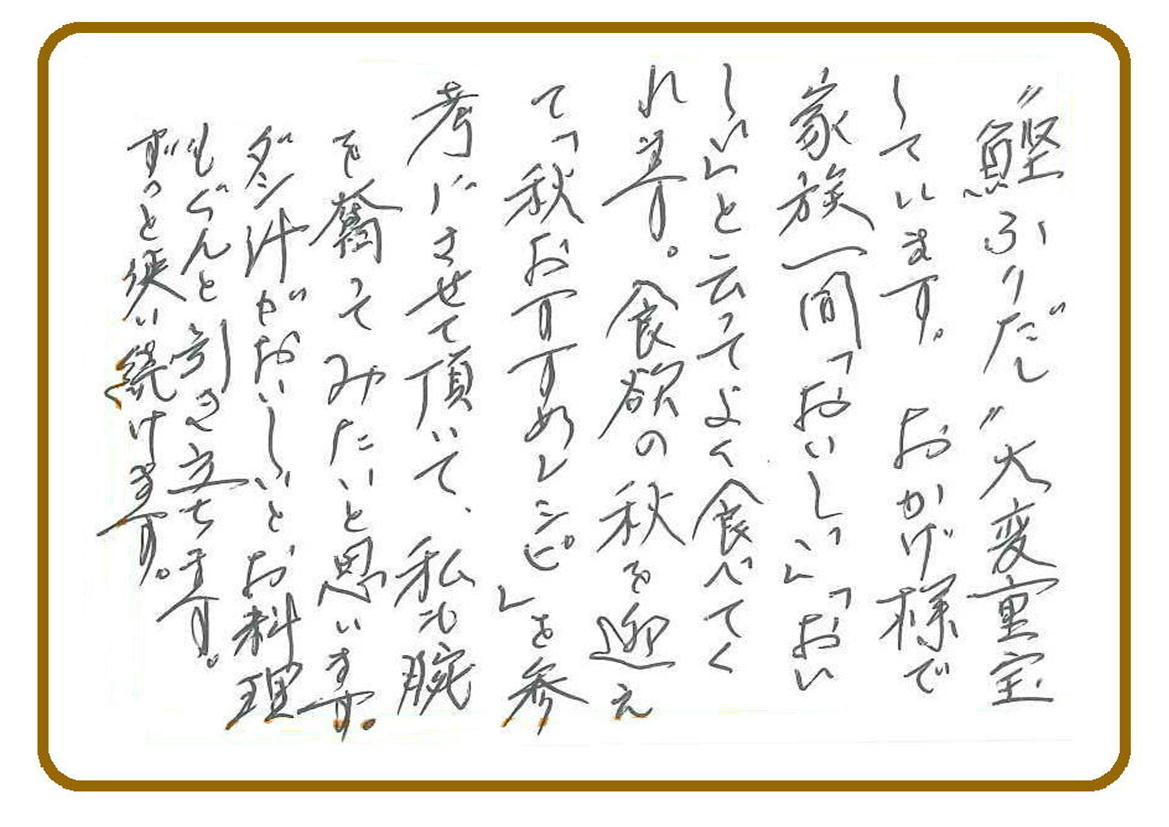 〝鰹ふりだし〟大変重宝
しています。 おかげ様で
家族一同「おいしい」「おい
しい」と云ってよく食べてく
れます。食欲の秋を迎え
て「秋おすすめレシピ」を参
考にさせて頂いて、私も腕
を奮ってみたいと思います。
ダシ汁がおいしいとお料理
もぐんと引き立ちます。
ずっと使い続けます。